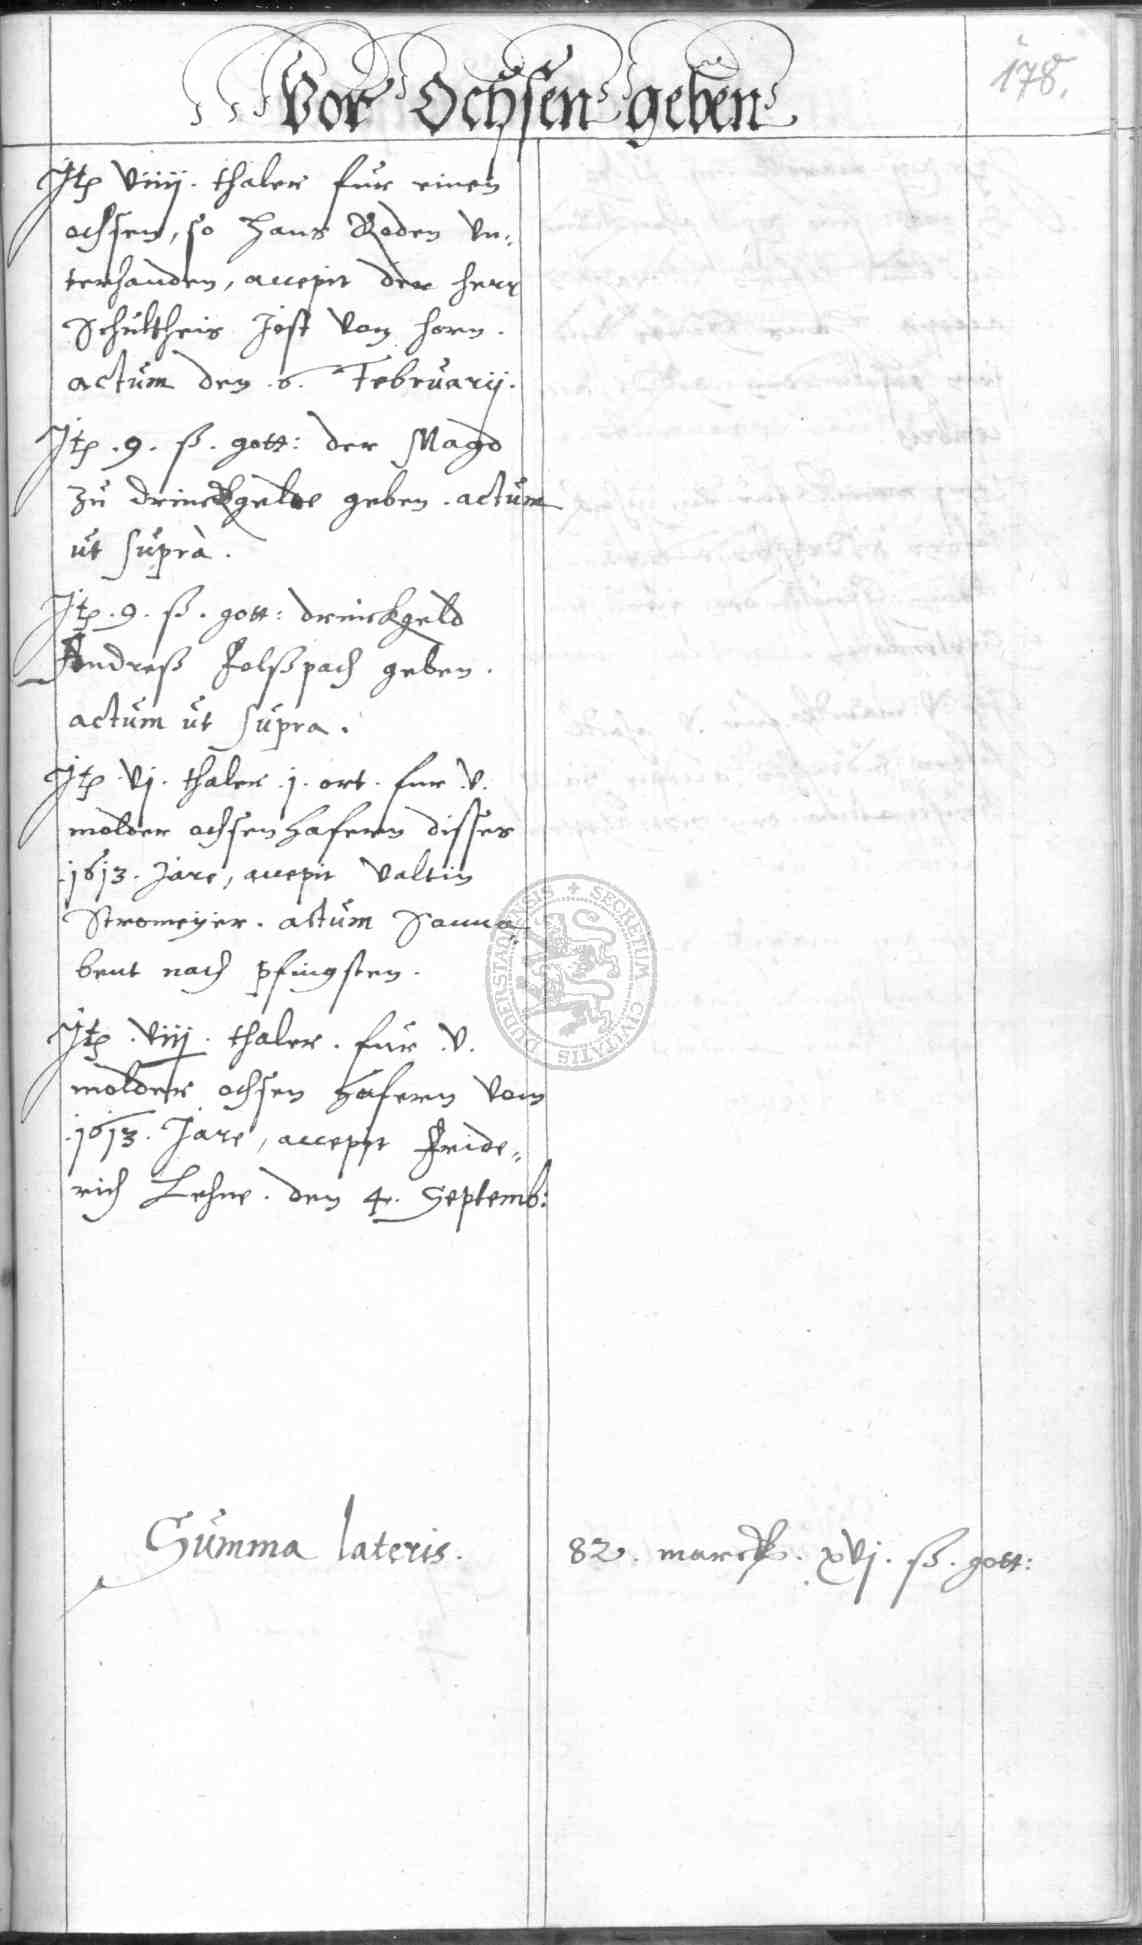 178.
Vor Ochsen geben
Itp viiij. thaler für einen
ochsen, so Hans Roden un„
terhanden, accepit der herr
Schultheis Jost von horn.
actum den .6. Februarij.
Itp .9. ß. gott: der Magd
zu drinckgelde geben. actum
ut suprà.
Itp .9. ß. gott: drinckgeld
Andreß Folßpach geben.
actum ut supra.
Itp vj. thaler .j. ort. fur .v.
molder ochsenhafern disses
1613. Jare, accepit Valtin
Stromeyer. actum Sonna„
bent nach pfingsten.
Itp .viij. thaler. für .v.
molder ochsen hafern vom
.1613. Jare, accepit Fride„
rich Lehne. den 4. Septemb:
DUDERSTADIENSIS + SECRETUM CIVITATIS
Summa lateris. 82. marck. xvj. ß. gott: